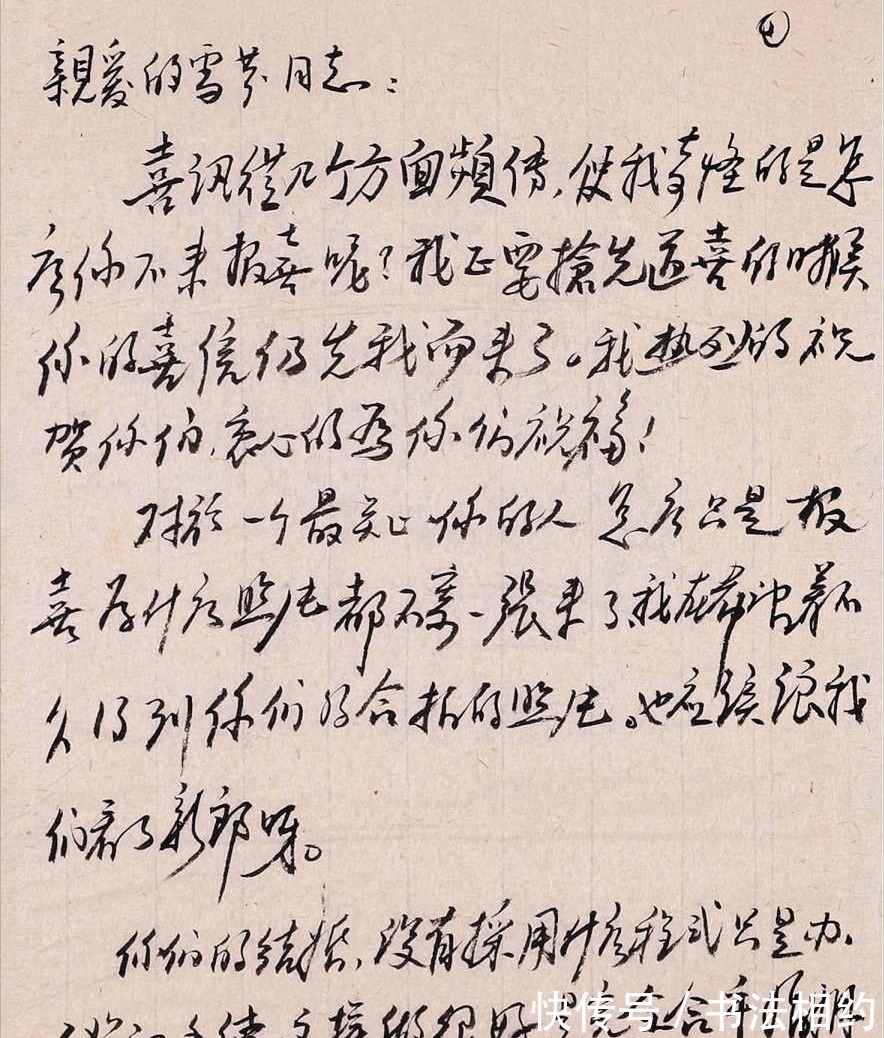 ①
親爱的雪芬同志：
喜訊從几个方面頻傳，使我奇怪的是怎
么你不来报喜呢？我正要搶先道喜的时候
你的喜信仍先我而来了。我热烈的祝
贺你们，衷心的為你们祝福！
对於一个最关心你的人怎么只是报
喜為什么照片都不寄一張来了，我在希望着不
久得到你们的合拍的照片。也应該讓我
们看了新郎呀。
你们的結婚，没有採用什么程式只是办，
快传号/书法相约